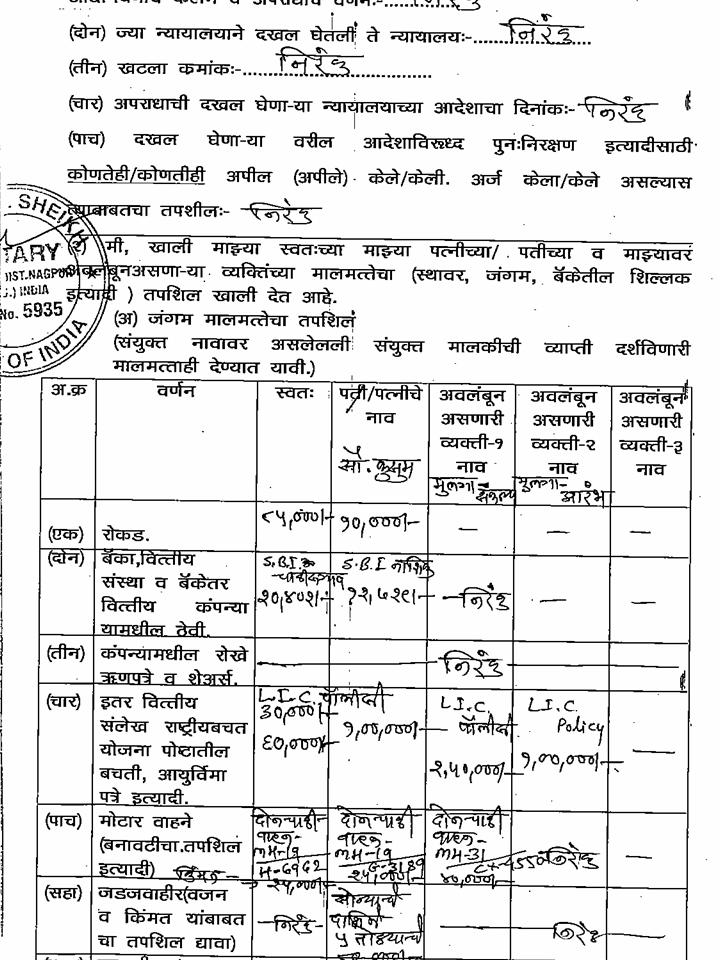 (दोन) ज्या न्यायालयाने दखल घेतली ते न्यायालयः-.......निरंक
(तीन) खटला क्रमांकः-......निरंक......
(चार) अपराधाची दखल घेणा-या न्यायालयाच्या आदेशाचा दिनांकः- निरंक
(पाच) दखल घेणा-या वरील आदेशाविरूध्द पुनःनिरक्षण इत्यादीसाठी
कोणतेही/कोणतीही अपील (अपीले) केले/केली. अर्ज केला/केले असल्यास
त्याबाबतचा तपशीलः- निरंक
SHEIKH
TARY
DIST.NAGPUR
INDIA
No. 5935
OF INDIA
मी, खाली माझ्या स्वतःच्या माझ्या पत्नीच्या/ पतीच्या व माझ्यावर
अवलंबूनअसणा-या व्यक्तिंच्या मालमत्तेचा (स्थावर, जंगम, बॅकेतील शिल्लक
इत्यादी ) तपशिल खाली देत आहे.
(अ) जंगम मालमत्तेचा तपशिल
(संयुक्त नावावर असलेलली संयुक्त मालकीची व्याप्ती दर्शविणारी
मालमत्ताही देण्यात यावी.)
अ.क्र वर्णन स्वतः पती/पत्नीचे नाव सौ. कुसुम अवलंबून असणारी व्यक्ती-१ नाव मुलगा- अवलंबून असणारी व्यक्ती-२ नाव मुलगा- अवलंबून असणारी व्यक्ती-३ नाव
(एक) रोकड. १०,०००/- — — —
(दोन) बॅका,वित्तीय संस्था व बॅकेतर वित्तीय कंपन्या यामधील ठेवी. S.B.I S.B.I नाशिक निरंक — —
(तीन) कंपन्यामधील रोखे ऋणपत्रे व शेअर्स. निरंक
(चार) इतर वित्तीय संलेख राष्ट्रीयबचत योजना पोष्टातील बचती, आयुर्विमा पत्रे इत्यादी. L.I.C पॉलीसी ३०,०००/- ६०,०००/- १,००,०००/- L.I.C. पॉलीसी २,५०,०००/- L.I.C. Policy १,००,०००/- —
(पाच) मोटार वाहने (बनावटीचा.तपशिल इत्यादी) किंमत दोनचाकी वाहन MH-19 दोनचाकी वाहन MH-19 दोनचाकी वाहन MH-31 ४०,०००/- निरंक —
(सहा) जडजवाहीर(वजन व किंमत यांबाबत चा तपशिल द्यावा) निरंक सोन्याचे दागिने ५ तोळ्याचे निरंक